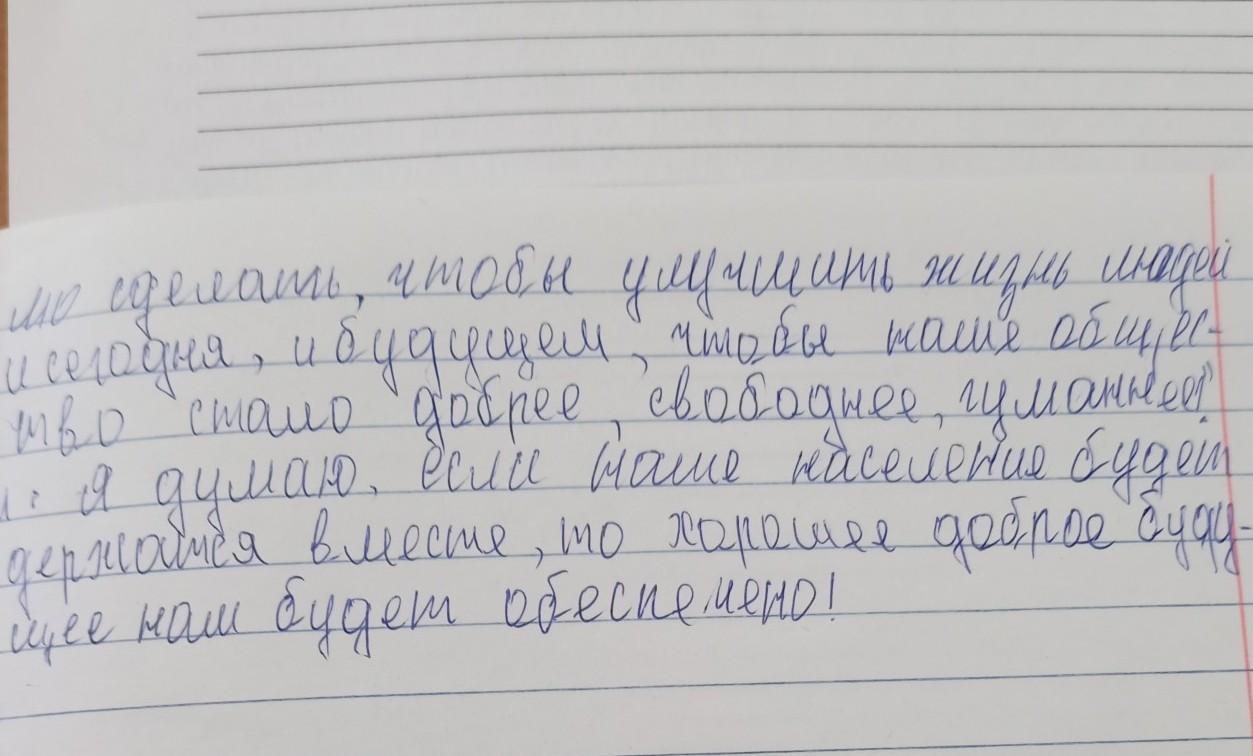 то сделать, чтобы улучшить жизнь людей
и сегодня, и будущем, чтобы наше общес-
тво стало добрее, свободнее, гуманнее?
: я думаю, если наше население будет
держатся вместе, то хорошее доброе буду-
щее нам будет обеспечено!